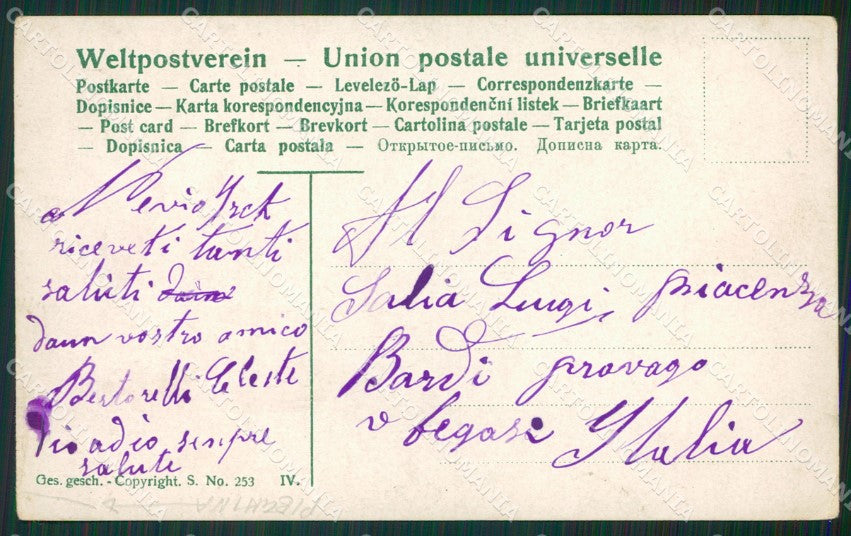 Weltpostverein — Union postale universelle
Postkarte — Carte postale — Levelező-Lap — Correspondenzkarte —
Dopisnice — Karta korespondencyjna — Korespondenční listek — Briefkaart
— Post card — Brefkort — Brevkort — Cartolina postale — Tarjeta postal
— Dopisnica — Carta postala — Открытое-письмо. Дописна карта.
riceveti tanti
saluti
daun vostro amico
Bertorelli Celeste
adio sempre
salute
Al Signor
Salia Luigi piacenza
Bardi provago
v begasi Italia
Ges. gesch. - Copyright. S. No. 253 IV.
CARTOLINOMANIA